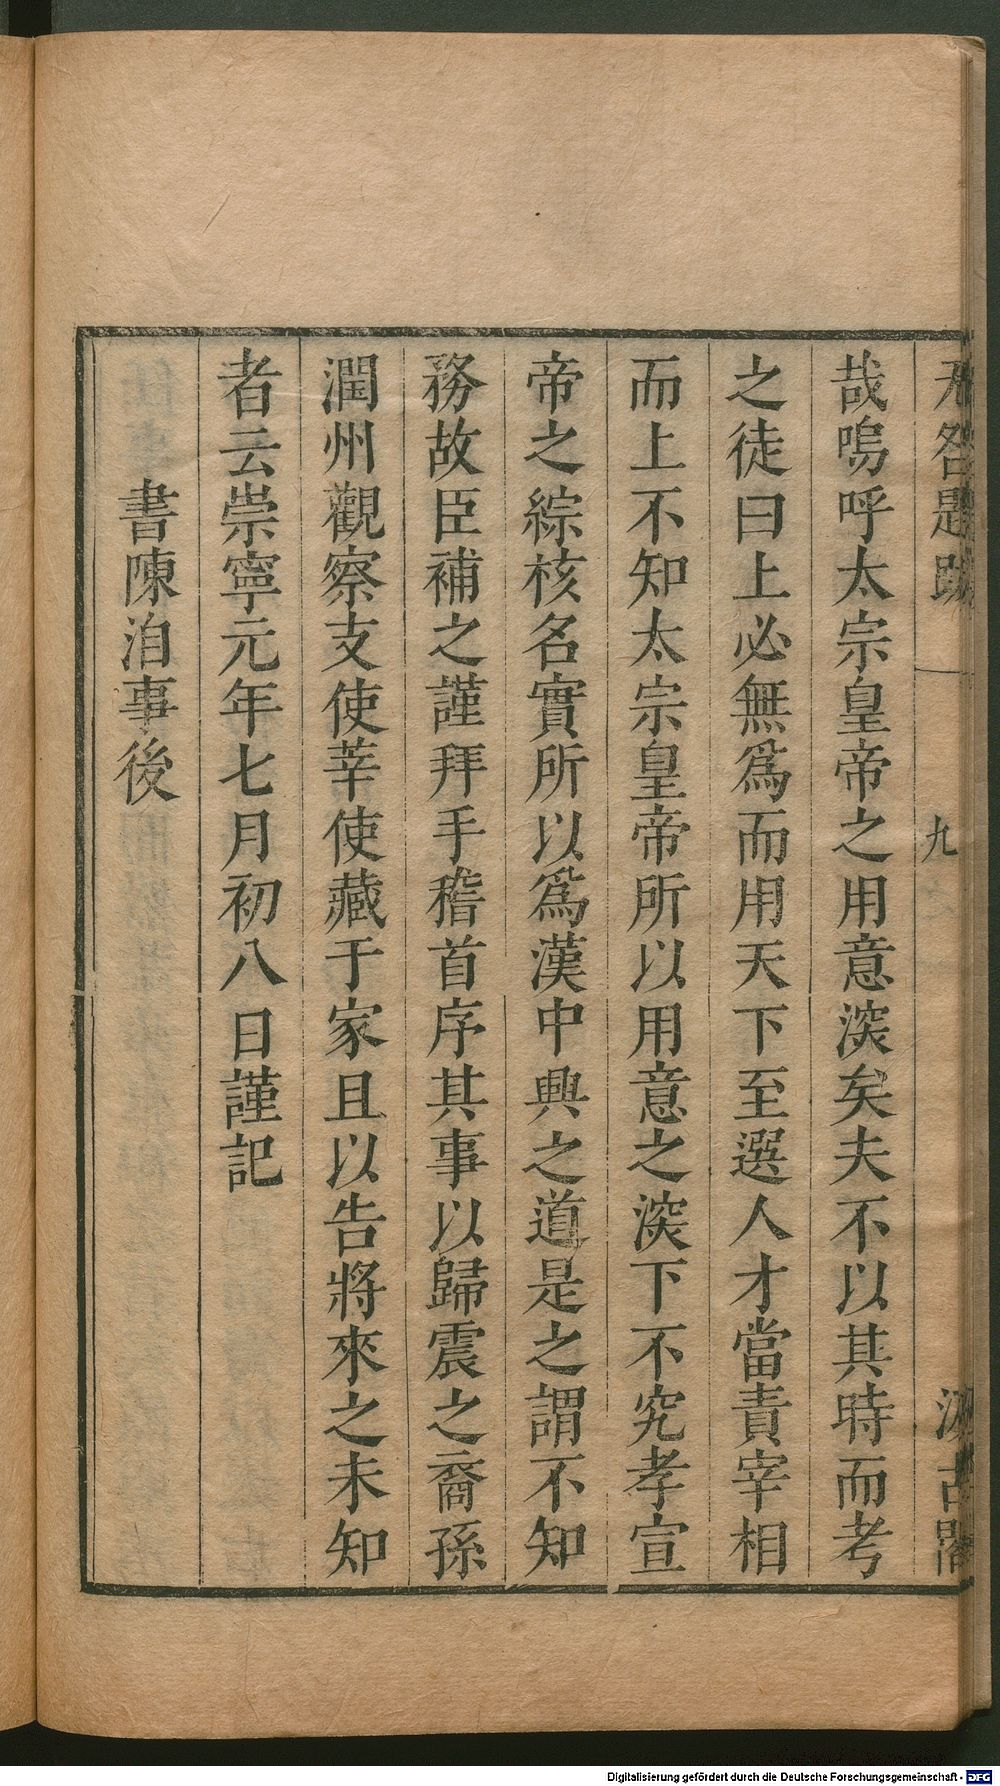 无咎題跋 一 九 汲古閣
哉嗚呼太宗皇帝之用意㴱矣夫不以其時而考
之徒曰上必無爲而用天下至選人才當責宰相
而上不知太宗皇帝所以用意之㴱下不究孝宣
帝之綜核名實所以爲漢中興之道是之謂不知
務故臣補之謹拜手稽首序其事以歸震之裔孫
潤州觀察支使莘使藏于家且以告將來之未知
者云崇寧元年七月初八日謹記
書陳洎事後
Digitalisierung gefördert durch die Deutsche Forschungsgemeinschaft - DFG